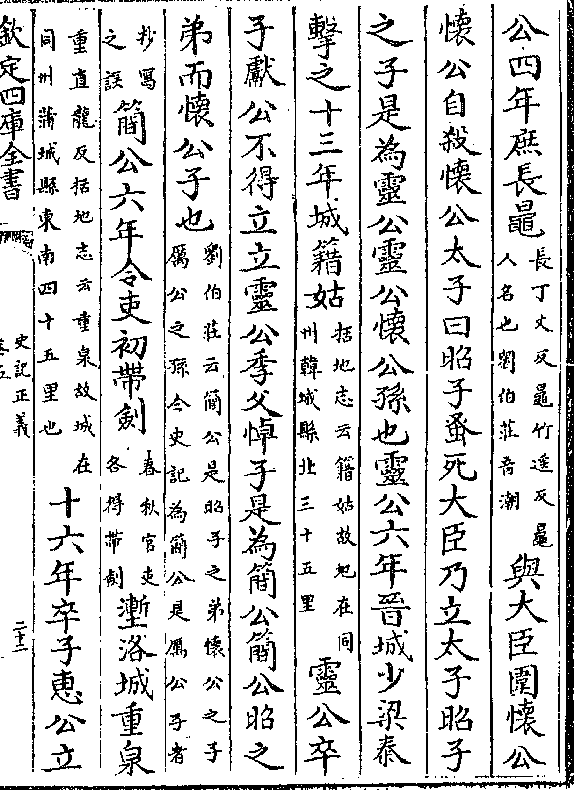 公四年庶長鼂
長丁丈反鼂竹遥反鼂
人名也劉伯莊音潮
與大臣圍懷公
懷公自殺懷公太子曰昭子蚤死大臣乃立太子昭子
之子是為靈公靈公懷公孫也靈公六年晉城少梁秦
擊之十三年城籍姑
括地志云籍姑故地在同
州韓城縣北三十五里
靈公卒
子獻公不得立立靈公季父悼子是為簡公簡公昭之
弟而懷公子也
劉伯莊云簡公是昭子之弟懷公之子
厲公之孫今史記為簡公是厲公子者
抄寫
之誤
簡公六年令吏初帶劒
春秋官吏
各得帶劒
塹洛城重泉
重直龍反括地志云重泉故城在
同州蒲城縣東南四十五里也
十六年卒子惠公立
欽定四庫全書
史記正義
卷五
二十二